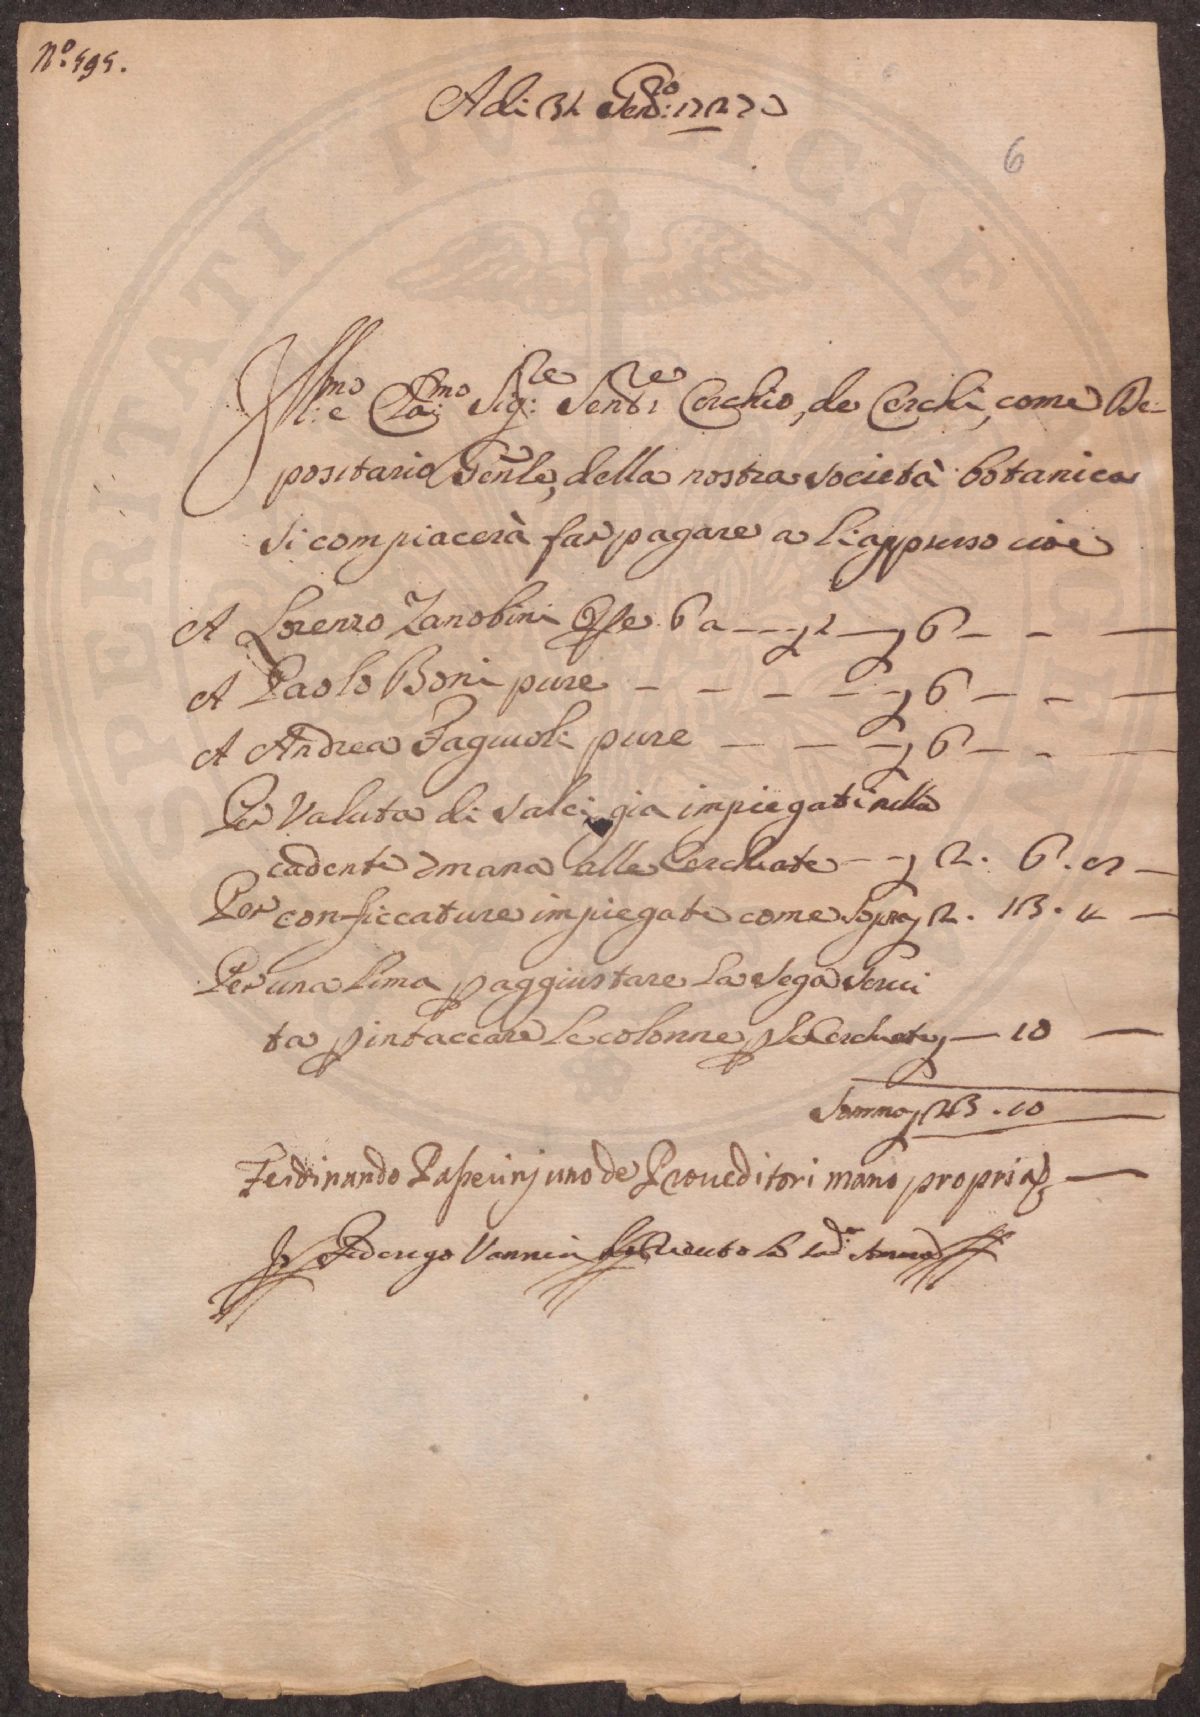 N.º 595.
Adi 31 Gen.º: 1727
6
Ill:mo e Cla:mo Sig:re Senat:re Cerchio, de Cerchi, come De-
positario Genle, della nostra società botanica
si compiacerà far pagare a li appresso cioè
A Lorenzo Zanobini Opre 6 a — 1 — 6 — — —
A Paolo Boni pure — — — — 6 — — —
A Andrea Faguioli pure — — — 6 — — —
Per Valuta di Salci, gia impiegati nella
cadente 7mana alle Cerchiate — 2. 6. 8 —
Per conficcature impiegate come Sopra 2. 13. 4 —
Per una Lima p aggiustare La Sega Servi
ta p intaccare Le colonne p le Cerchiate — 10 —
Somma 23. 10 —
Ferdinando Passerinj uno de Proveditori mano propria —
Io Federigo Vannini ò riceuto La sud.a Somma
PERITATI PUBLICAE